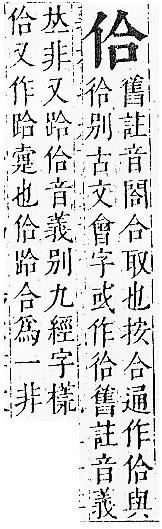 佮
舊註音閤合取也按合通作佮與
㣛别古文會字或作㣛舊註音義
𠀤非又跲佮音義别九經字樣
佮又作跲疐也佮跲合爲一非